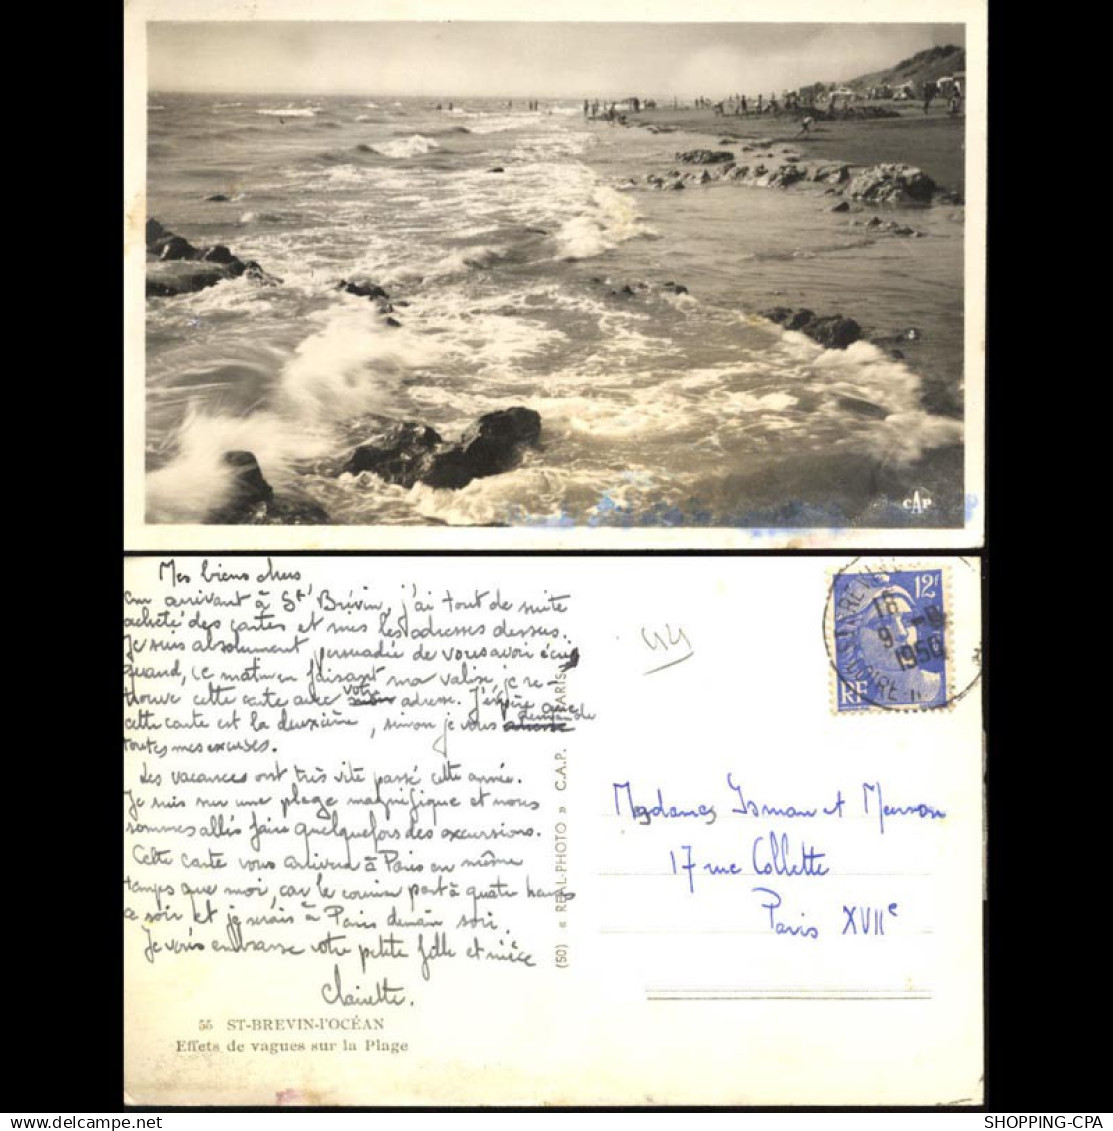 CAP
Mes biens chers
en arrivant à St' Brévin, j'ai tout de suite
acheté des cartes et mis les adresses dessus.
Je suis absolument persuadée de vous avoir écrit
quand, ce matin en faisant ma valise, je re-
trouve cette carte avec votre adresse. J'éspère que
cette carte est la deuxième, sinon je vous demande
toutes mes excuses.
Les vacances ont très vite passé cette année.
Je suis sur une plage magnifique et nous
sommes allés faire quelquefois des excursions.
Cette carte vous arrivera à Paris en même
temps que moi, car le courrier part à quatre heures
ce soir et je serais à Paris demain soir.
Je vous embrasse votre petite fille et nièce
Clairette.
55 ST-BREVIN-l'OCÉAN
Effets de vagues sur la Plage
(50) « REAL-PHOTO » C.A.P. PARIS
44
12F
RF
16
9
1950
LOIRE
Mesdames Isman et Meurson
17 rue Collette
Paris XVIIe
SHOPPING-CPA